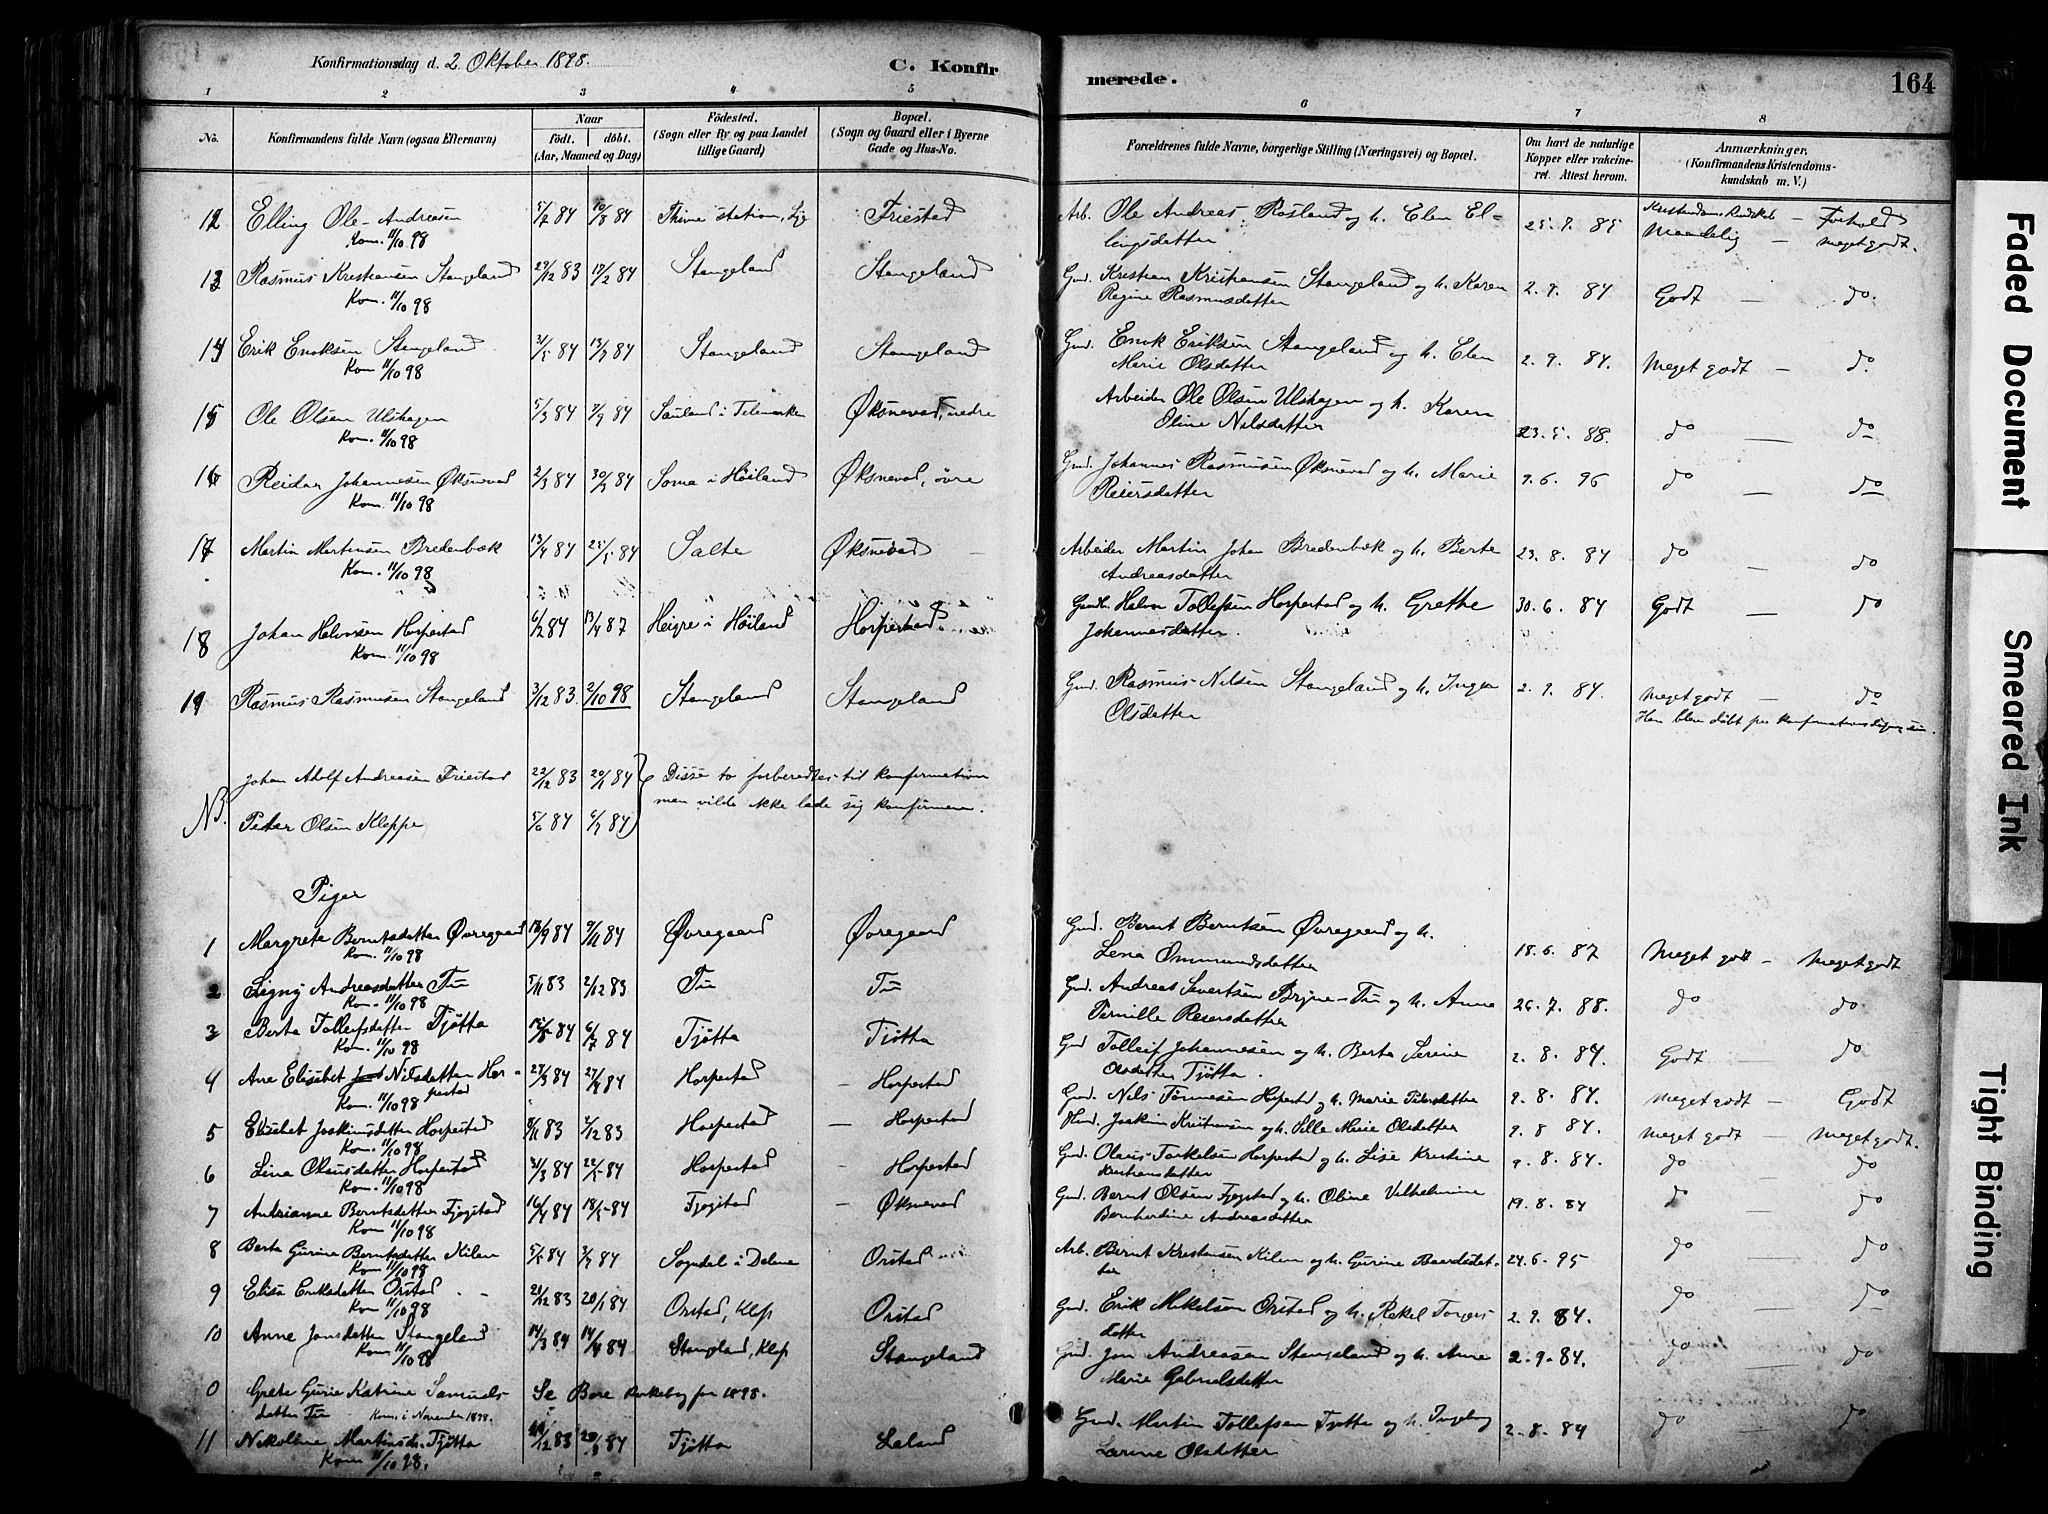 Konfirmationsdag d. 2 Oktober 1898.
C. Konfir
merede.
164
1 2 3 4 5 6 7 8
No.
Konfirmandens fulde Navn (ogsaa Efternavn)
Naar
födt. döbt.
(Aar, Maaned og Dag)
Födested.
(Sogn eller By og paa Landet
tillige Gaard)
Bopæl.
(Sogn og Gaard eller i Byerne
Gade og Hus-No.
Forældrenes fulde Navne, borgerlige Stilling (Næringsvei) og Bopæl.
Om havt de naturlige
Kopper eller vakcine-
ret. Attest herom.
Anmærkninger.
(Konfirmandens Kristendoms-
kundskab m. V.)
12 Elling Ole Andreasen 5/2 84 10/3 84 Thime station, Lye Friestad Arb. Ole Andreas Rosland og h. Elen El- 25. 9. 85 Kristendoms Kundskab – Forhold
Kom. 11/10 98 lingsdatter Maadelig – meget godt.
13 Rasmus Kristiansen Stangeland 29/12 83 17/2 84 Stangeland Stangeland Gmd. Kristian Kristiansen Stangeland og h. Karen 2. 9. 84 Godt – do
Kom. 11/10 98 Regine Rasmusdatter
14 Erik Enoksen Stangeland 31/5 84 13/7 84 Stangeland Stangeland Gmd. Enok Eriksen Stangeland og h. Elen 2. 9. 84. Meget godt – do
Kom 11/10 98 Marie Olsdatter
15 Ole Olsen Ulshagen 5/3 84 7/9 84 Sauland i Telemarken Øksnevad, nedre Arbeider Ole Olsen Ulshagen og h. Karen
Kom. 11/10 98 Oline Nilsdatter 23. 5. 88. do – do
16 Reidar Johannesen Øksnevad 2/3 84 30/3 84 Soma i Höiland Øksnevad, övre Gmd. Johannes Rasmusen Øksnevad og h. Marie 9. 6. 96 do – do
Kom. 11/10 98 Reiersdatter
17 Martin Martinsen Bredenbæk 13/4 84 25/5 84 Salte Øksnevad Arbeider Martin Johan Bredenbæk og h. Berte 23. 8. 84 do – do
Kom. 11/10 98 Andreasdatter
18 Johan Halvorsen Horpestad 6/2 84 13/4 87 Heigre i Höiland Horpestad Halvor Tollefsen Horpestad og h. Grethe 30. 6. 84 Godt – do
Kom. 11/10 98 Johannesdatter.
19 Rasmus Rasmusen Stangeland 3/12 83. 2/10 98 Stangeland Stangeland Gmd. Rasmus Nilsen Stangeland og h. Inger 2. 9. 84. Meget godt – do
Olsdatter Han blev döbt paa konfirmationsdagen
NB. Johan Adolf Andreasen Friestad 22/12 83 20/1 84 Disse to forberedtes til konfirmation
men vilde ikke lade sig konfirmere.
Peter Olsen Kleppe 5/6 84 6/7 84
Piger
1 Margrete Berntsdatter Øvregaard 18/9 84 9/11 84 Øvregaard Øvregaard Gmd. Bernt Berntsen Øvregaard og h.
Kom. 11/10 98 Lena Ommundsdatter 18. 6. 87 Meget godt – Meget godt
2 Signy Andreasdatter Tu 5/11 83 2/12 83 Tu Tu Gmd. Andreas Sivertsen Bryne-Tu og h. Anne 26. 7. 88. do do
Kom. 11/10 98 Pernille Reiersdatter
3 Berta Tolleifsdatter Tjøtta 15/5 84 6/7 84 Tjøtta Tjøtta Gmd Tolleif Johannesen og h. Berta Serine 2. 8. 84. Godt – do
Kom. 11/10 98 Olsdatter Tjøtta.
4 Ane Elisabet Nilsdatter Hor- 23/3 84 27/4 84 Horpestad – Horpestad Gmd. Nils Tønnesen Horpestad og h. Marie Pedersdatter 9. 8. 84. Meget godt – Godt
Kom. 11/10 98 pestad
5 Elisabet Joakimsdatter Horpestad 9/11 83 2/12 83 Horpestad – Horpestad Joakim Kristiansen og h. Sille Marie Olsdatter 9. 8 84. Meget godt – Meget godt.
Kom. 11/10 98
6 Lina Olausdatter Horpestad 31/3 84 22/5 84 Horpestad – Horpestad Gmd. Olaus Torkelsen Horpestad og h. Lise Kristine 9. 8. 84. do – do
Kom. 11/10 98 Kristiansdatter
7 Andrianne Berntsdatter Fjogstad 16/4 84 18/5 84 Fjogstad – Øksnevad Gmd. Bernt Olsen Fjogstad og h. Oline Vilhelmine 19. 8. 84 do – do
Kom 11/10 98 Bernhardine Andreasdatter
8 Berta Gurine Berntsdatter Kilen 5/5 84 3/7 84 Sogndal i Dalene Orstad Arb. Bernt Kristensen Kilen og h. Gurine Baardsdat- 24. 6. 95 do – do
Kom 11/10 98 ter
9 Elise Eriksdatter Orstad 21/12 83 20/1 84 Orstad, Klep Orstad Gmd. Erik Mikelsen Orstad og h. Rakel Torgers 2. 9. 84. do – do
Kom. 11/10 98 datter
10 Anne Jonsdatter Stangeland 14/3 84 14/4 84 Stangeland, Klep Stangeland Gmd. Jon Andreasen Stangeland og h. Anne 2. 9. 84. do – do
Kom 11/10 98 Marie Gabrielsdatter
0 Grete Gurie Katrine Samuels- Se Bore kirkebog for 1898.
datter Tu Kom. i November 1898.
11 Nikoline Martinsd. Tjøtta 12 83 20 84 Tjøtta Laland Gmd. Martin Tollefsen Tjøtta og h. Ingeborg 2. 8. 84 do – do
Kom 11/10 98. Larine Olsdatter
Faded Document
Smeared Ink
Tight Binding